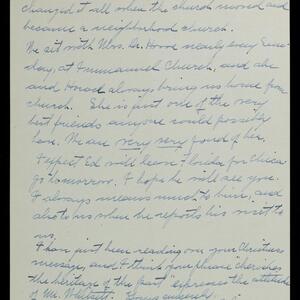 changed it all when the church moved and
became a neighborhood church.
We sit with Mrs. Dr. Howe nearly every Sun-
day, at Immanuel Church, and she
and Howard always bring us home from
church. She is just one of the very
best friends anyone could possibly
have. We are very very fond of her.
I expect Ed will leave Florida for Chica-
go tomorrow. I hope he will see you.
It always means much to him, and
also to us when he reports his visit to
us.
I have just been reading over your Christmas
message, and I think your phrase "cherishes
the heritage of the past" expresses the attitude
of Mr.